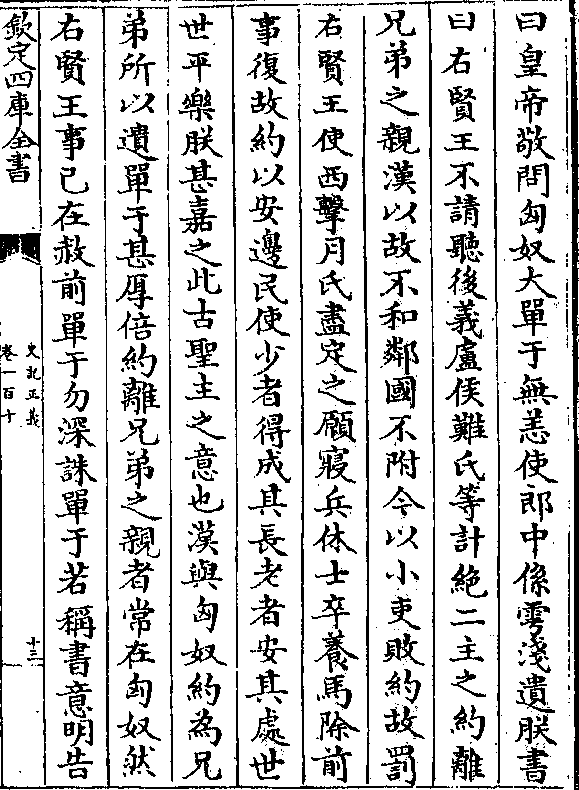 曰皇帝敬問匈奴大單于無恙使郎中係雩淺遺朕書
曰右賢王不請聽後義盧侯難氏等計絶二主之約離
兄弟之親漢以故不和鄰國不附今以小吏敗約故罰
右賢王使西擊月氏盡定之願寢兵休士卒養馬除前
事復故約以安邊民使少者得成其長老者安其處世
世平樂朕甚嘉之此古聖主之意也漢與匈奴約為兄
弟所以遺單于甚厚倍約離兄弟之親者常在匈奴然
右賢王事已在赦前單于勿深誅單于若稱書意明告
欽定四庫全書
史記正義
卷一百十
十三